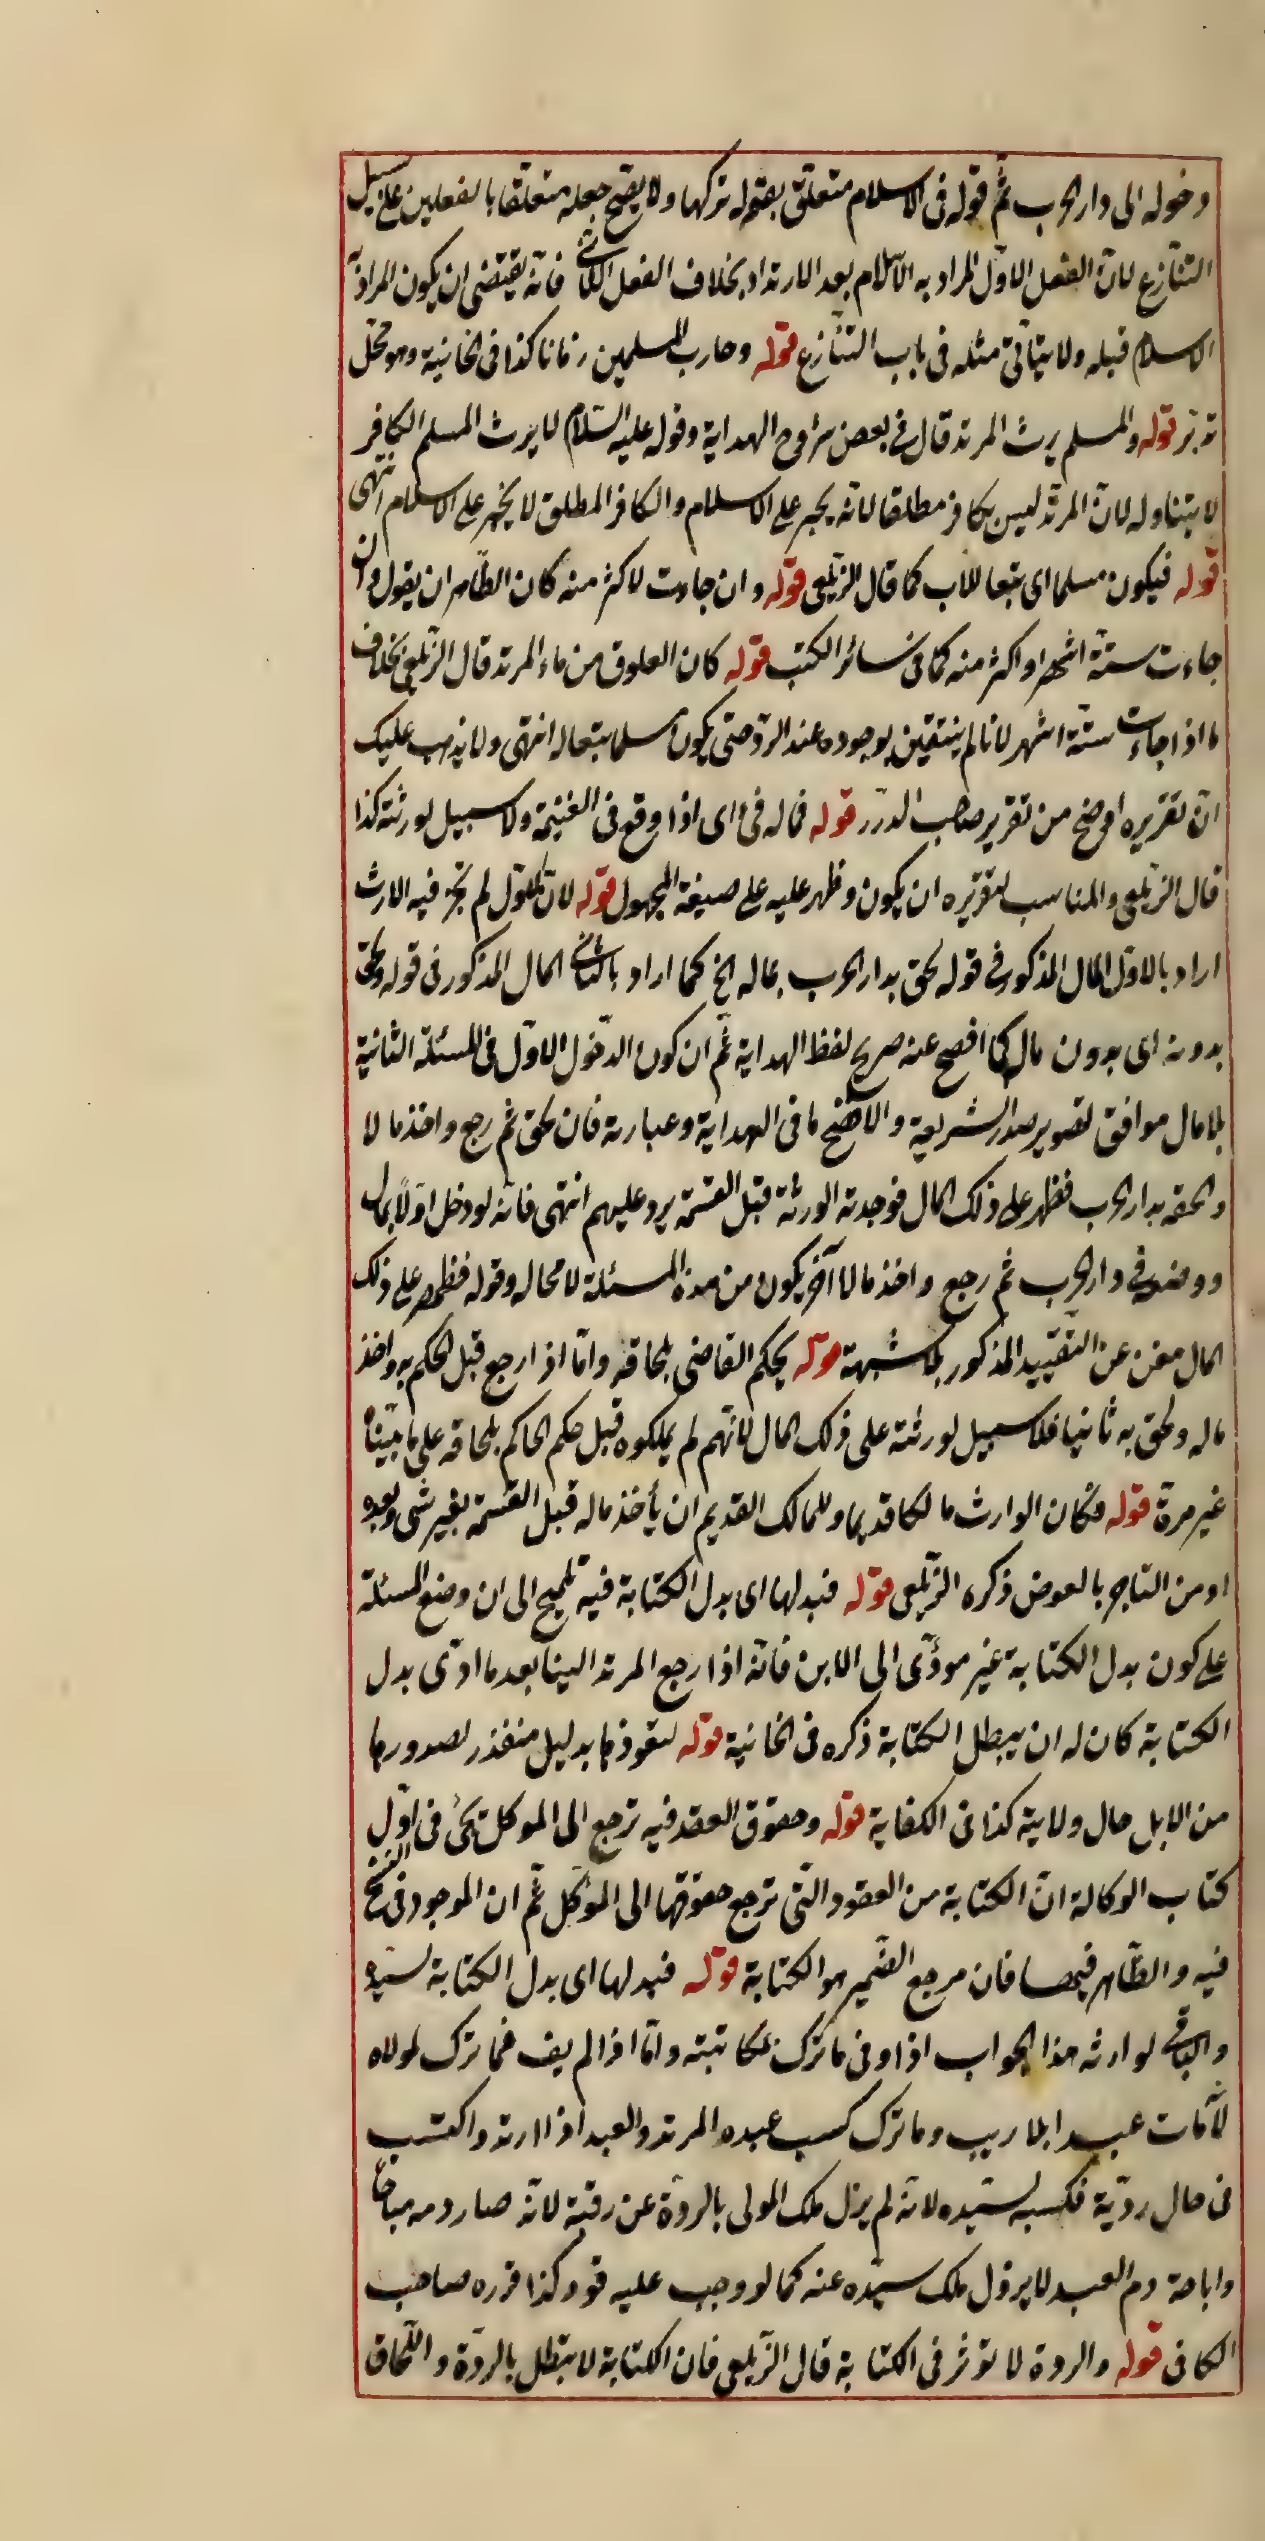 دخوله الى دار الحرب ثم قوله فى الاسلام متعلق بقوله تركها ولا يصح جعله متعلقا بالفعلين على سبيل
التنازع لان الفعل الاول المراد به الاسلام بعد الارتداد بخلاف الفعل الثانى فانه يقتضى ان يكون المراد به
الاسلام قبله ولا يتأتى مثله فى باب التنازع قوله وحارب المسلمين زمانا كذا فى الخانية وهو محل
تدبر قوله والمسلم يرث المرتد قال فى بعض شروح الهداية وقوله عليه السلام لا يرث المسلم الكافر
لا يتناوله لان المرتد ليس بكافر مطلقا لانه يجبر على الاسلام والكافر المطلق لا يجبر على الاسلام انتهى
قوله فيكون مسلما اى تبعا للاب كما قال الزيلعى قوله وان جاءت لاكثر منه كان الظاهر ان يقول وان
جاءت ستة اشهر او اكثر منه كما فى سائر الكتب قوله كان العلوق من ماء المرتد قال الزيلعى بخلاف
ما اذا جاءت ستة اشهر لانا لم نتيقن بوجوده عند الردة حتى يكون مسلما تبعا له انتهى ولا يذهب عليك
ان تقريره اوضح من تقرير صاحب الدرر قوله فماله فئ اى اذا وقع فى الغنيمة ولا سبيل لورثته كذا
قال الزيلعى والمناسب لتقريره ان يكون وظهر عليه على صيغة المجهول قوله لان الاول لم يجر فيه الارث
اراد بالاول المال المذكور فى قوله لحق بدار الحرب بماله الخ كما اراد بالثانى المال المذكور فى قوله ولحق
بدونه اى بدون مال كما افصح عنه صريح لفظ الهداية ثم ان كون الدخول الاول فى المسئلة الثانية
بلا مال موافق لتصوير صدر الشريعة والاوضح ما فى الهداية وعبارته فان لحق ثم رجع واخذ مالا
والحقه بدار الحرب فظهر على ذلك المال فوجدته الورثة قبل القسمة يرد عليهم انتهى فانه لو دخل اولا بمال
ووضعه فى دار الحرب ثم رجع واخذ مالا آخر يكون من هذه المسئلة لا محالة وقوله فظهر على ذلك
المال مغن عن التقييد المذكور بلا شبهة قوله يحكم القاضى بلحاقه واما اذا رجع قبل الحكم به واخذ
ماله ولحق به ثانيا فلا سبيل لورثته على ذلك المال لانهم لم يملكوه قبل حكم الحاكم بلحاقه على ما بيناه
غير مرة قوله فكان الوارث مالكا قديما وللمالك القديم ان يأخذ ماله قبل القسمة بغير شئ وبعده
او من التاجر بالعوض ذكره الزيلعى قوله فبدلها اى بدل الكتابة فيه تلميح الى ان وضع المسئلة
على كون بدل الكتابة غير مؤدى الى الابن فانه اذا رجع المرتد الينا بعد ما ادى بدل
الكتابة كان له ان يبطل الكتابة ذكره فى الخانية قوله لنفوذها بدليل منفذ لصدورها
من الابل حال ولايته كذا فى الكفاية قوله وحقوق العقد فيه ترجع الى الموكل يجئ فى اول
كتاب الوكالة ان الكتابة من العقود التى ترجع حقوقها الى الموكل ثم ان الموجود فى النسخ
فيه والظاهر فيها فان مرجع الضمير هو الكتابة قوله فبدلها اى بدل الكتابة لسيده
والباقى لوارثه هذا الجواب اذا وفى ما ترك بمكاتبته واما اذا لم يف فما ترك لمولاه
لانه مات عبدا بلا ريب وما ترك كسب عبده المرتد والعبد اذا ارتد واكتسب
فى حال ردته فكسبه لسيده لانه لم يزل ملك المولى بالردة عن رقبته لانه صار دمه مباحا
واباحة دم العبد لا يزول ملك سيده عنه كما لو وجب عليه قود كذا قرره صاحب
الكافى قوله والردة لا تؤثر فى الكتابة قال الزيلعى فان الكتابة لا تبطل بالردة واللحاق